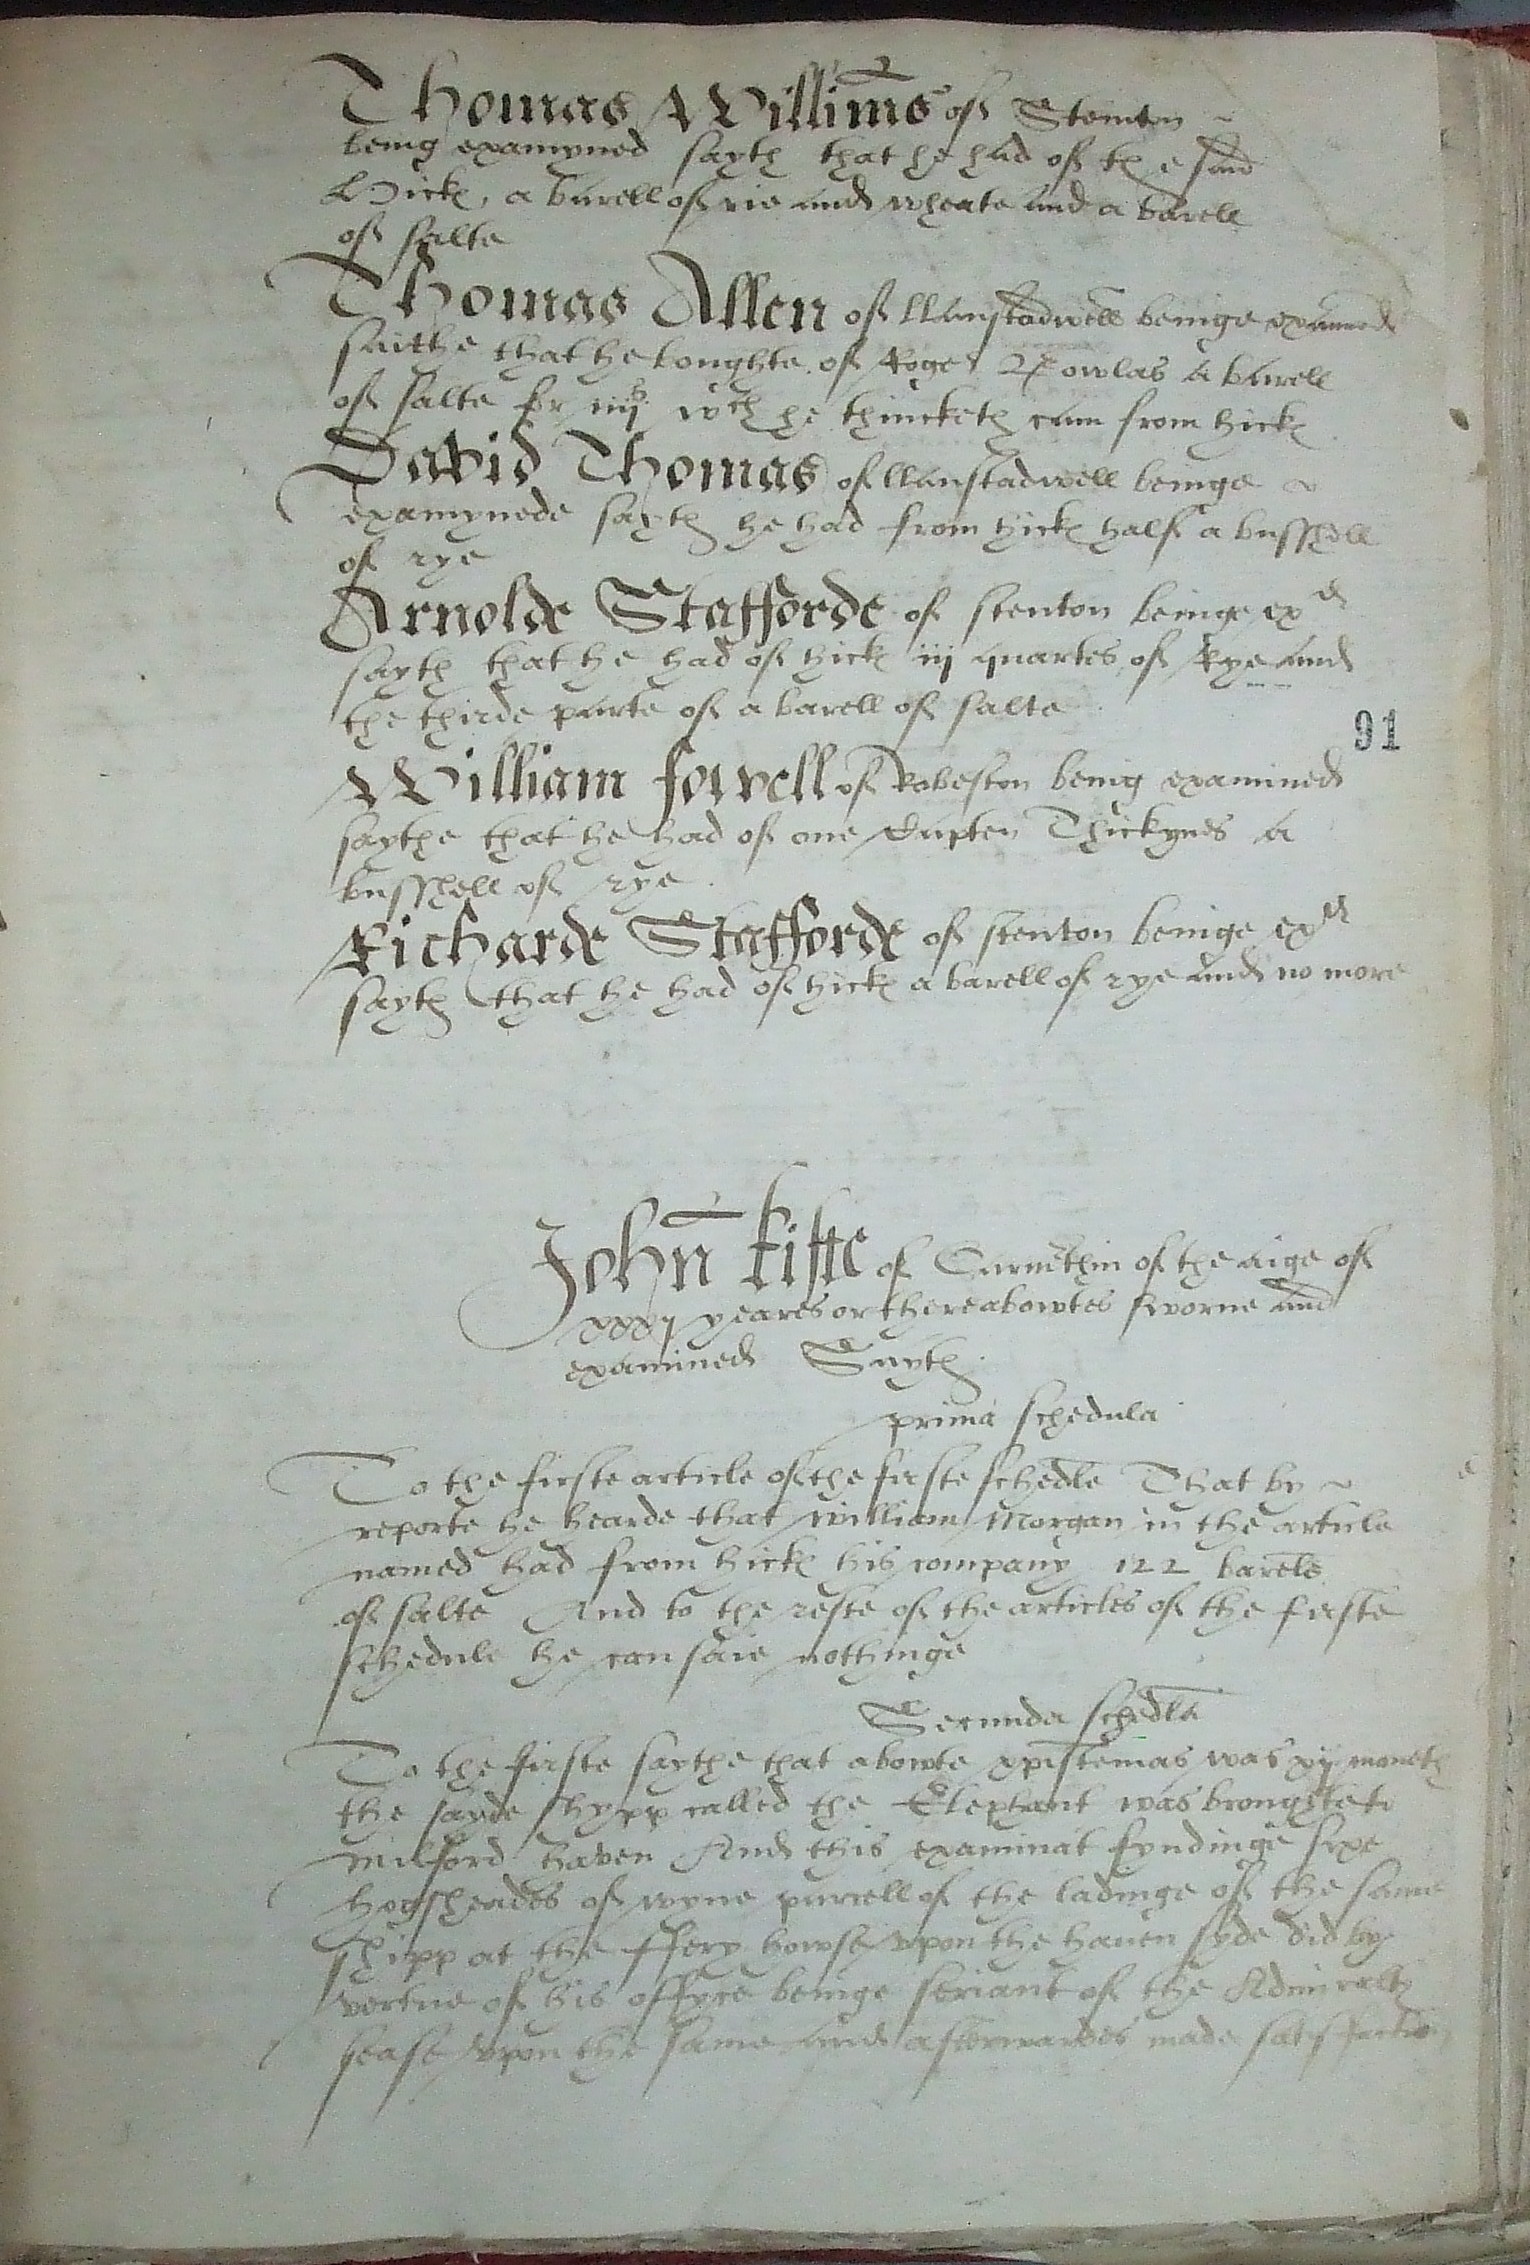 Thomas Willims of Steinton
being examyned sayth that he had of the said
Hick, a barell of rie and wheate and a barell
of salte
Thomas Allen of llanstadwell beinge examined
saithe that he boughte of Roger a barell
of salte for iiijs wch he thincketh cam from hick
David Thomas of llanstadwell beinge
examynede sayth he had from hick half a busshell
of rye
Arnolde Stafforde of stenton beinge exd
sayth that he had of hick iij quartes of Rye and
the thirde parte of a barell of salte
91
William Jowell of Robeston being examined
saythe that he had of one Thickyns a
busshell of rye
Richarde Stafforde of stenton beinge exd
sayth that he had of hick a barell of rye and no more
John kifte of Carmthin of the aige of
yeares or thereabowtes sworne and
examined Sayth
prima schedula
To the firste article of the firste schedle That by
reporte he hearde that william Morgan in the article
named had from hick his company 122 barels
of salte And to the reste of the articles of the firste
schedule he can saie nothinge
Secunda schedla
To the firste saythe that abowte xpistemas was xij moneth
the sayde shypp called the Elephant was broughte to
milford haven And this examinat fyndinge sixe
hogsheades of wyne parcell of the ladinge of the same
shipp at the ffery howse upon the haven syde did by
vertue of his offyce beinge seriant of the Admiralty
sease upon the same and afterwardes made satisfaction